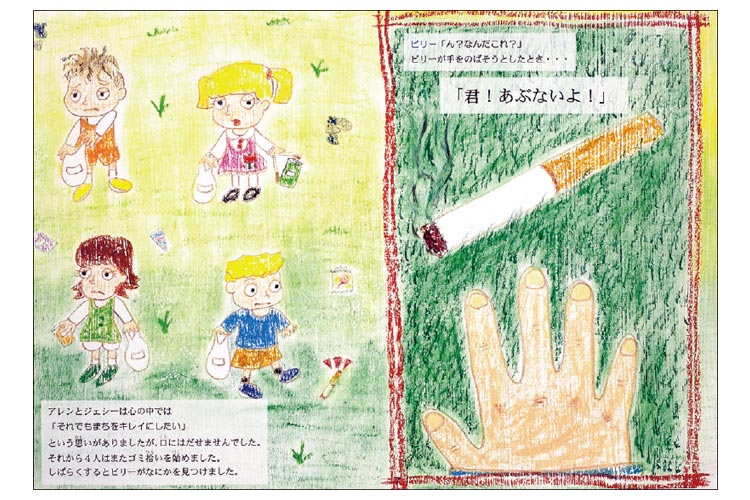 アレンとジェシーは心の中では
「それでもまちをキレイにしたい」
という思いがありましたが、口にはだせませんでした。
それから4人はまたゴミ拾いを始めました。
しばらくするとビリーがなにかを見つけました。
ビリー「ん？なんだこれ？」
ビリーが手をのばそうとしたとき・・・
「君！あぶないよ！」